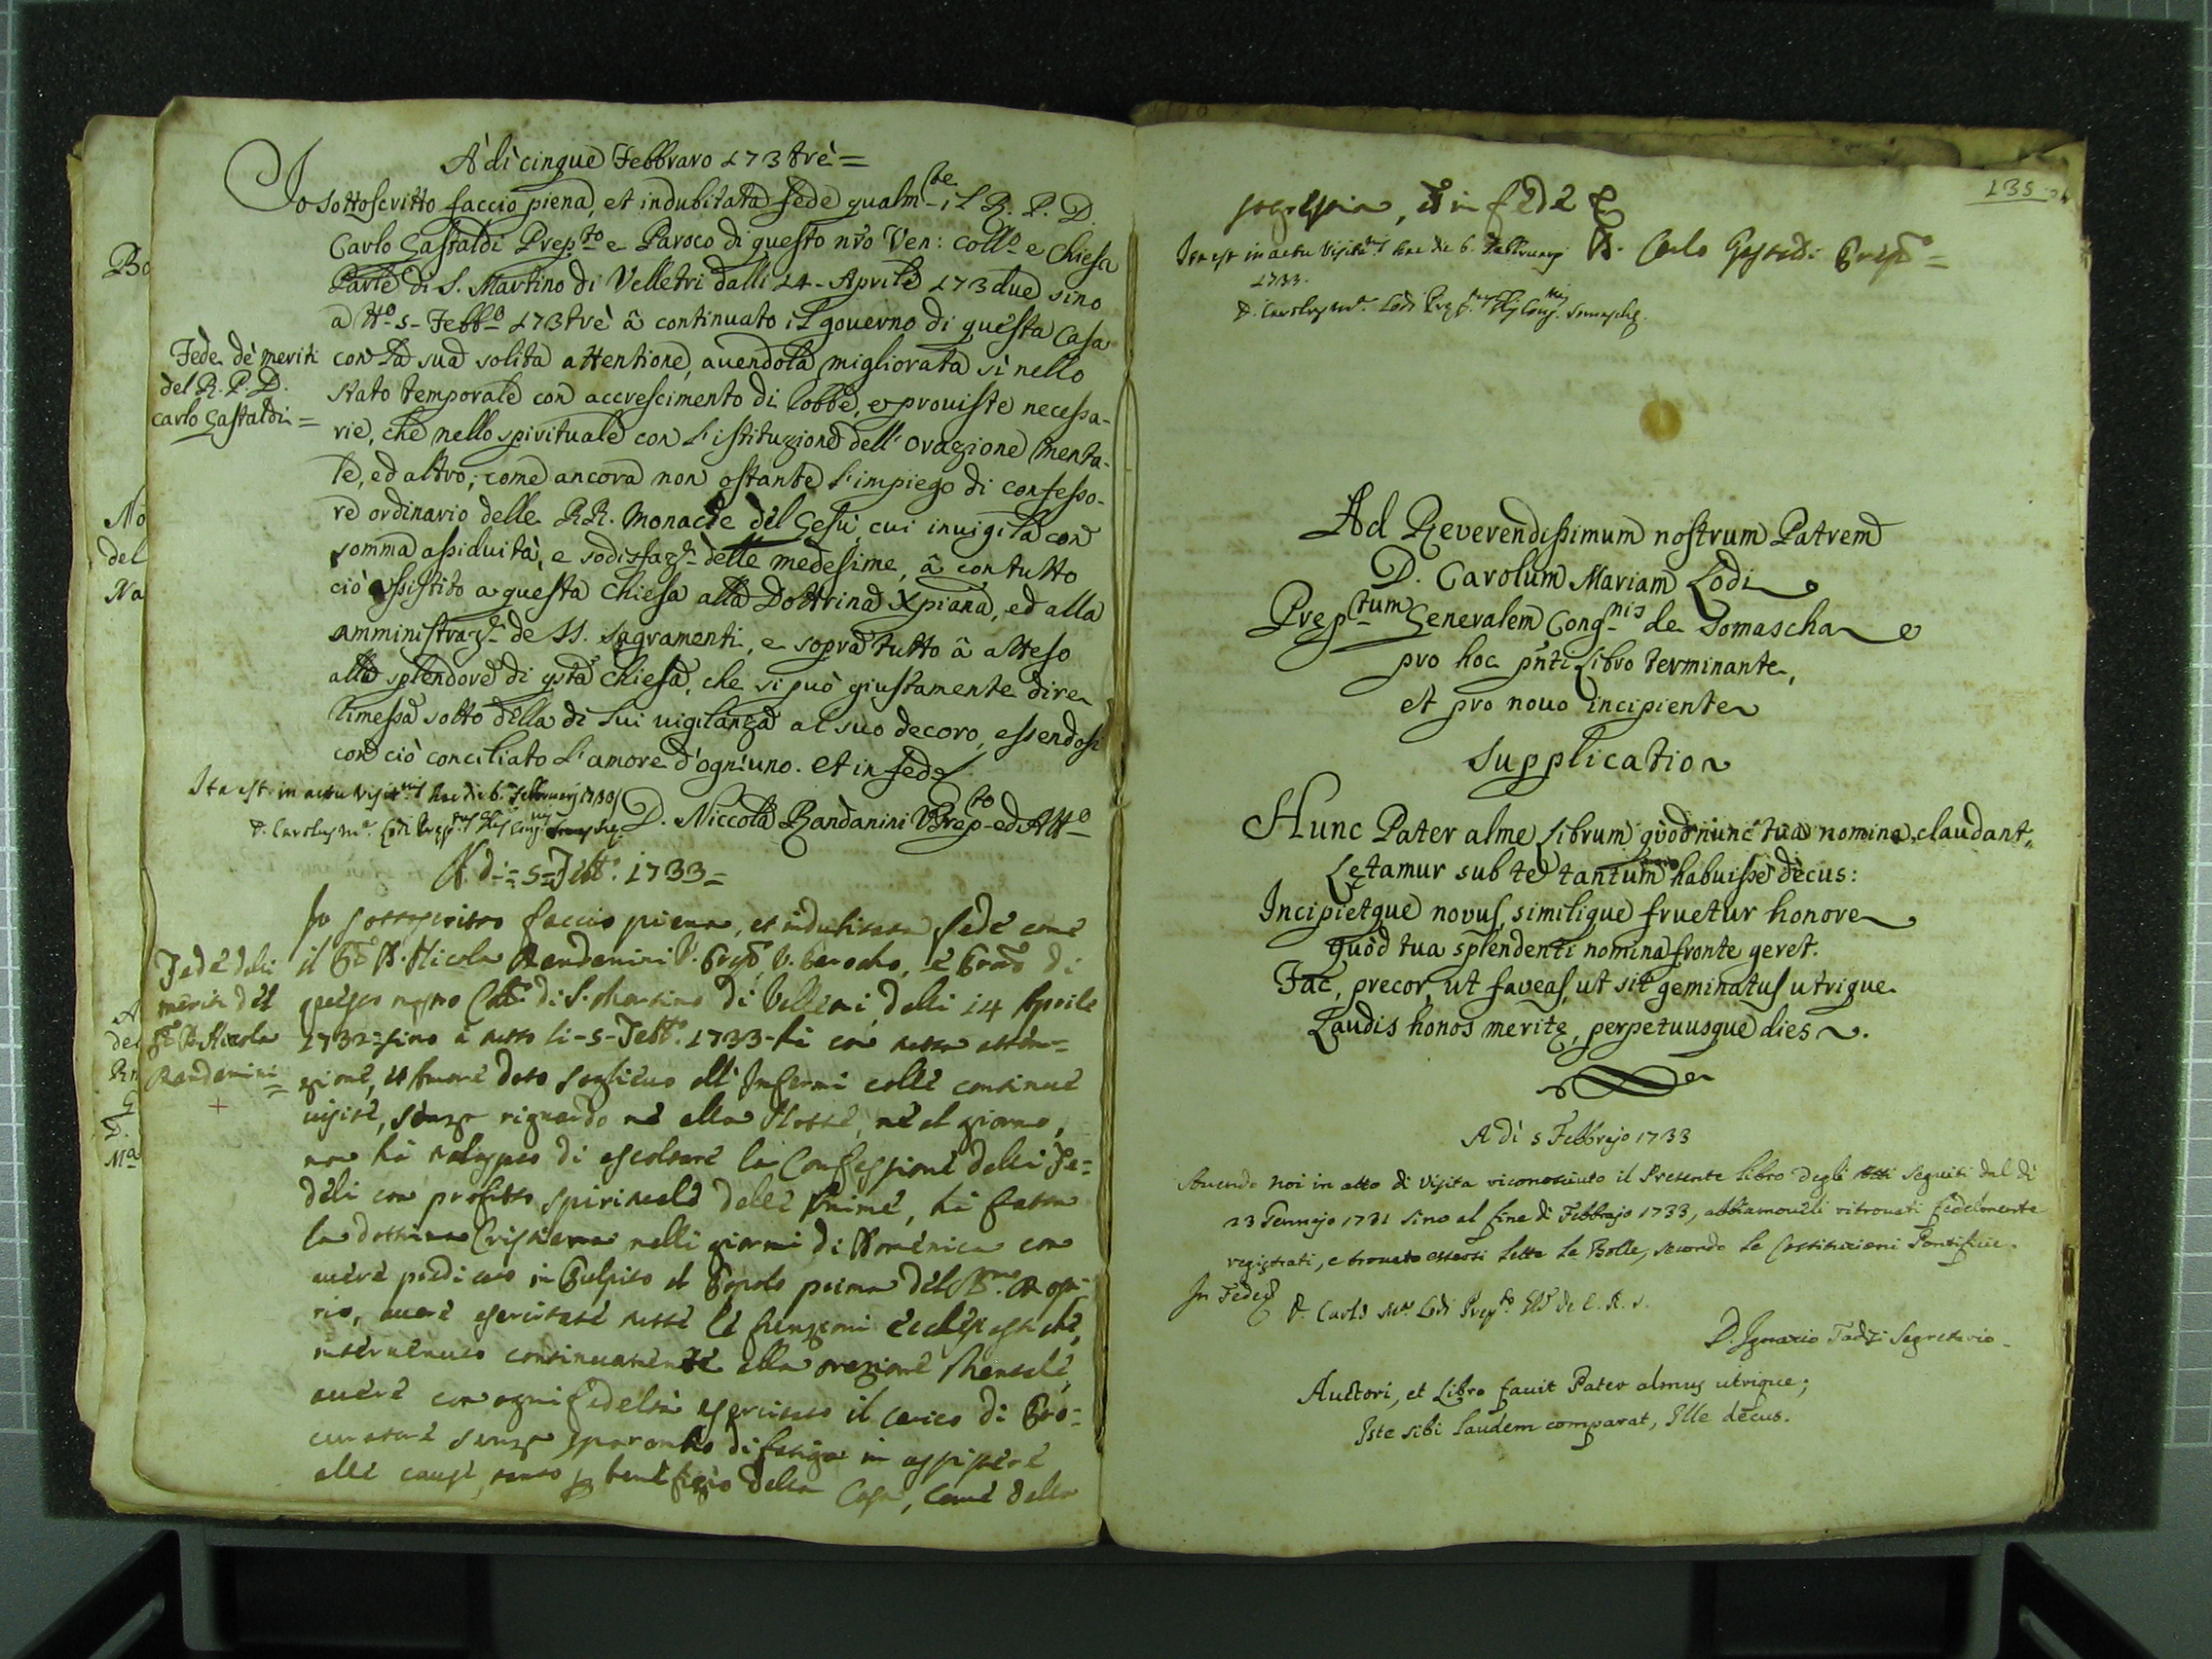 A' dì cinque Febbraro 173trè=
Io sottoscritto faccio piena, et indubitata fede qualm.te il R. P. D.
Carlo Gastaldi Prep.to e Paroco di questo nro Ven: Coll.o e Chiesa
Parle di S. Martino di Velletri dalli 14- Aprile 173due sino
a tt.o 5- Febb.o 173trè â continuato il governo di questa Casa
Fede de meriti
del R. P. D.
Carlo Gastaldi=
con la sua solita attentione, avendola migliorata sì nello
stato temporale con accrescimento di robbe, e proviste necessa-
rie, che nello spirituale con l'istituzione dell'Orazione menta-
le, ed altro; come ancora non ostante l'impiego di confesso-
re ordinario delle RR. Monache del Gesù, cui invigila con
somma assiduità, e sodisfaz.e delle medesime, â con tutto
ciò assistito a questa Chiesa alla Dottrina Xpiana, ed alla
amministraz.e de SS. Sagramenti, e sopra tutto â atteso
allo splendore di qsta Chiesa, che si può giustamente dire
rimessa sotto della di lui vigilanza al suo decoro, essendosi
con ciò conciliato l'amore d'ogn'uno. Et in fede
Ita est in actu Visit.nis hac die 6. Februarij 1733
D. Carolus M.a Lodi Prep.tus Glis Cong.nis Somaschę
D. Niccola Randanini VPrep.to ed Att.o
A dì = 5 = Febb.o 1733=
Io sottoscritto faccio piena, et indubitata fede come
Fede delli
meriti del
P. D. Nicola
Randanini=
+
il P. D. Nicola Randanini V. Prep.o, V. Parocho, è Proc.o di
questo nostro Coll.o di S. Martino di Velletri, dalli 14 Aprile
1732= sino à tutto li - 5 - Febb.o 1733 - hà con tutta atten=
zione, et Amore dato sollievo alli Infermi colle continue
visite, senza riguardo nè alla Notte, nè al giorno,
di ascoltare la Confessione delli Fe=
deli con profitto spirituale delle Anime, hà fatta
la dottrina Cristiana nelli giorni di Domenica con
avere predicato in Pulpito al Popolo prima del SS.mo Rosa-
rio, avere esercitate tutte le funzioni Ecclesiastiche,
intervenuto continuamente alla orazione Mentale,
avere con ogni fedeltà esercitato il carico di Pro=
curatore senza sparambio di fatiga in assistere
alle cause, tanto p benefizio della Casa, come della
135
Sagrestia, et in fede
D. Carlo Gastaldi Prep.o=
Ita est in actu Visit.nis hac die 6. Februarij
1733.
D. Carolus M.a Lodi Prep.tus Glis Cong.nis Somaschę.
Ad Reverendissimum nostrum Patrem
D. Carolum Mariam Lodi
Prep.tum Generalem Cong.nis de Somascha
pro hoc pñti Libro terminante,
et pro novo incipiente
Supplicatio
Hunc Pater alme Librum quod nunc tua nomina claudant,
Lętamur sub te tantum habuisse decus:
Incipietque novus, similique fruetur honore
Quòd tua splendenti nomina fronte geret.
Fac, precor, ut faveas, ut sit geminatus utrique
Laudis honos meritę, perpetuusque dies.
A dì 5 Febbrajo 1733
Avendo Noi in atto di Visita riconosciuto il Presente Libro degli Atti seguiti dal dì
23 Gennajo 1731 sino al fine di Febbrajo 1733, abbiamoveli ritrovati fedelmente
registrati, e trovato essersi lette le Bolle, secondo le Costituzioni Pontificie.
In Fede
D. Carlo M.a Lodi Prep.to Gñle de C. R. S.
D. Ignazio Tadisi Segretario.
Auctori, et Libro favit Pater almus utrique;
Iste sibi laudem comparat, Ille decus.